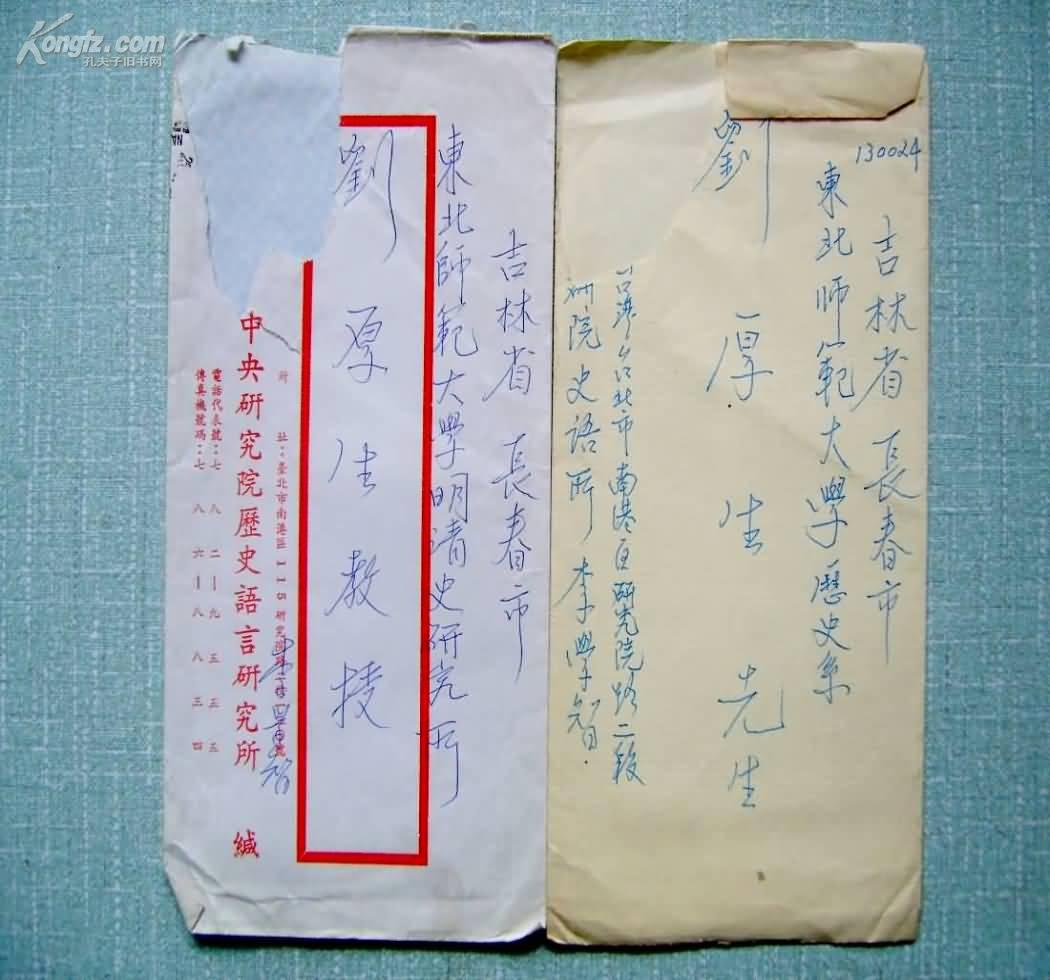 Kongfz.com
孔夫子旧书网
吉林省 長春市
東北師範大學明清史研究所
劉厚生教授
址：臺北市南港區115研究院路二段
李學智
中央研究院歷史語言研究所 緘
電話代表號：七八二—九五五五
傳真機號碼：七八六—八八三四
130024
吉林省 長春市
東北师範大學歷史系
劉厚生先生
台灣台北市南港區研究院路二段
研院史語所 李學智